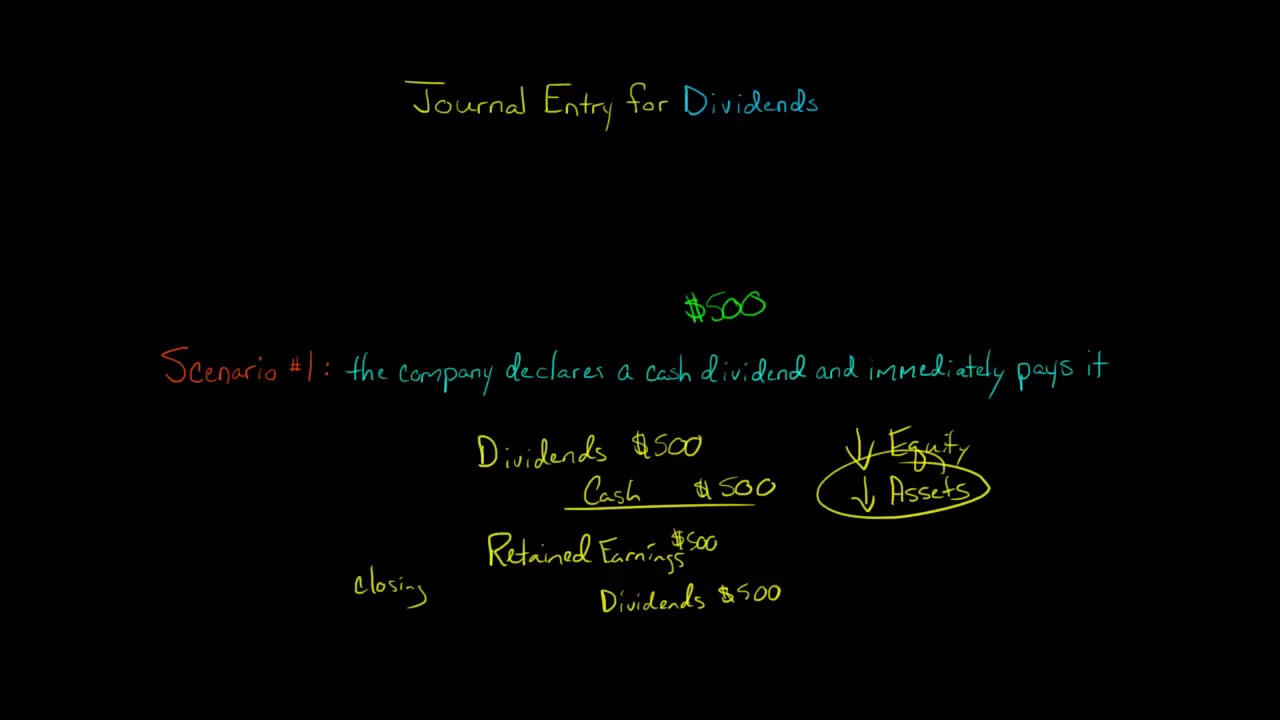 Journal Entry for Dividends
$500
Scenario #1: the company declares a cash dividend and immediately pays it
Dividends $500
↓ Equity
Cash $500
↓ Assets
Retained Earnings $500
closing
Dividends $500